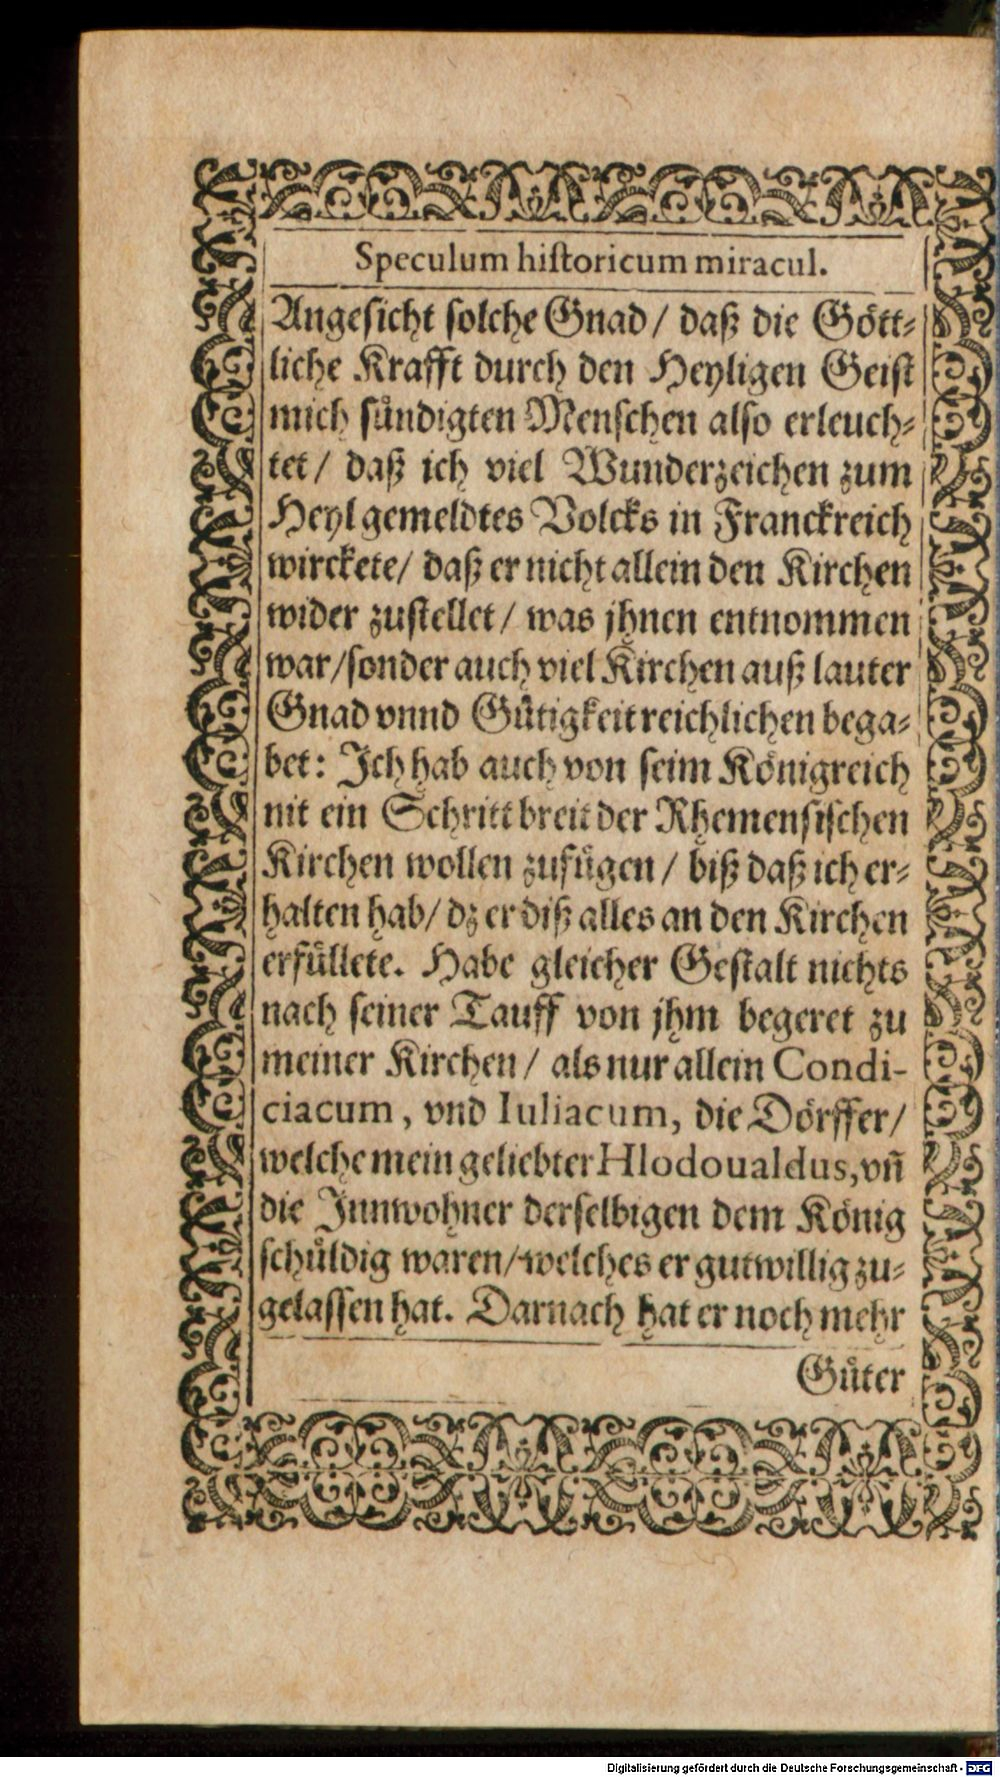 Speculum hiſtoricum miracul.
Angeſicht ſolche Gnad / daß die Goͤtt⸗
liche Krafft durch den Heyligen Geiſt
mich ſuͤndigten Menſchen alſo erleuch⸗
tet / daß ich viel Wunderzeichen zum
Heyl gemeldtes Volcks in Franckreich
wirckete / daß er nicht allein den Kirchen
wider zuſtellet / was jhnen entnommen
war / ſonder auch viel Kirchen auß lauter
Gnad vnnd Guͤtigkeit reichlichen bega⸗
bet: Ich hab auch von ſeim Koͤnigreich
nit ein Schritt breit der Rhemenſiſchen
Kirchen wollen zufuͤgen / biß daß ich er⸗
halten hab / dz er diß alles an den Kirchen
erfuͤllete. Habe gleicher Geſtalt nichts
nach ſeiner Tauff von jhm begeret zu
meiner Kirchen / als nur allein Condi-
ciacum, vnd Iuliacum, die Doͤrffer /
welche mein geliebter Hlodoualdus, vñ
die Innwohner derſelbigen dem Koͤnig
ſchuͤldig waren / welches er gutwillig zu⸗
gelaſſen hat. Darnach hat er noch mehr
Guͤter
Digitalisierung gefördert durch die Deutsche Forschungsgemeinschaft - DFG